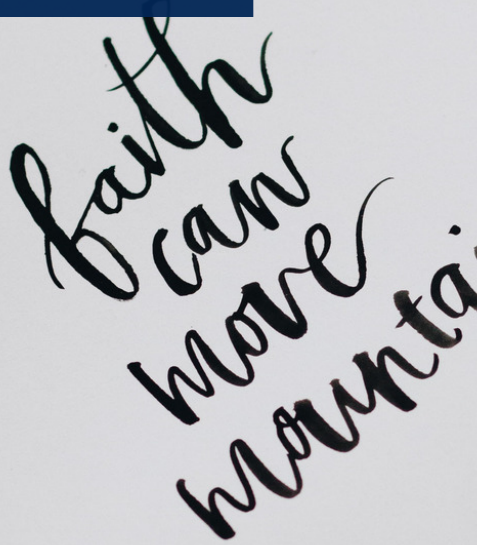 faith
can
move
mountai